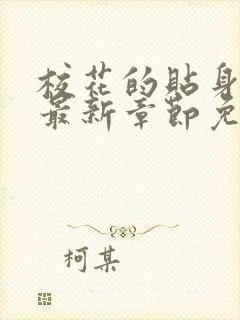 校花的貼身
最新章節免
柯某